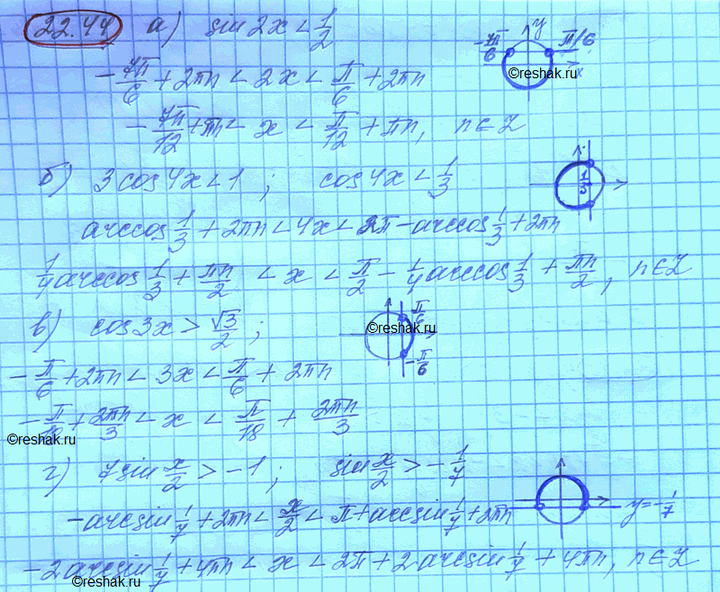 22.44 а) sin 2x < 1/2
-7π/6 + 2πn < 2x < π/6 + 2πn
-7π/12 + πn < x < π/12 + πn, n ∈ Z
-7π/6 π/6 y x
©reshak.ru
б) 3cos4x < 1 ; cos4x < 1/3
1/3
arccos 1/3 + 2πn < 4x < 2π - arccos 1/3 + 2πn
1/4 arccos 1/3 + πn/2 < x < π/2 - 1/4 arccos 1/3 + πn/2, n ∈ Z
в) cos3x > √3/2 ;
π/6
©reshak.ru
-π/6
-π/6 + 2πn < 3x < π/6 + 2πn
-π/18 + 2πn/3 < x < π/18 + 2πn/3
©reshak.ru
г) 7sin x/2 > -1 ; sin x/2 > -1/7
y=-1/7
-arcsin 1/7 + 2πn < x/2 < π + arcsin 1/7 + 2πn
-2arcsin 1/7 + 4πn < x < 2π + 2arcsin 1/7 + 4πn, n ∈ Z
©reshak.ru